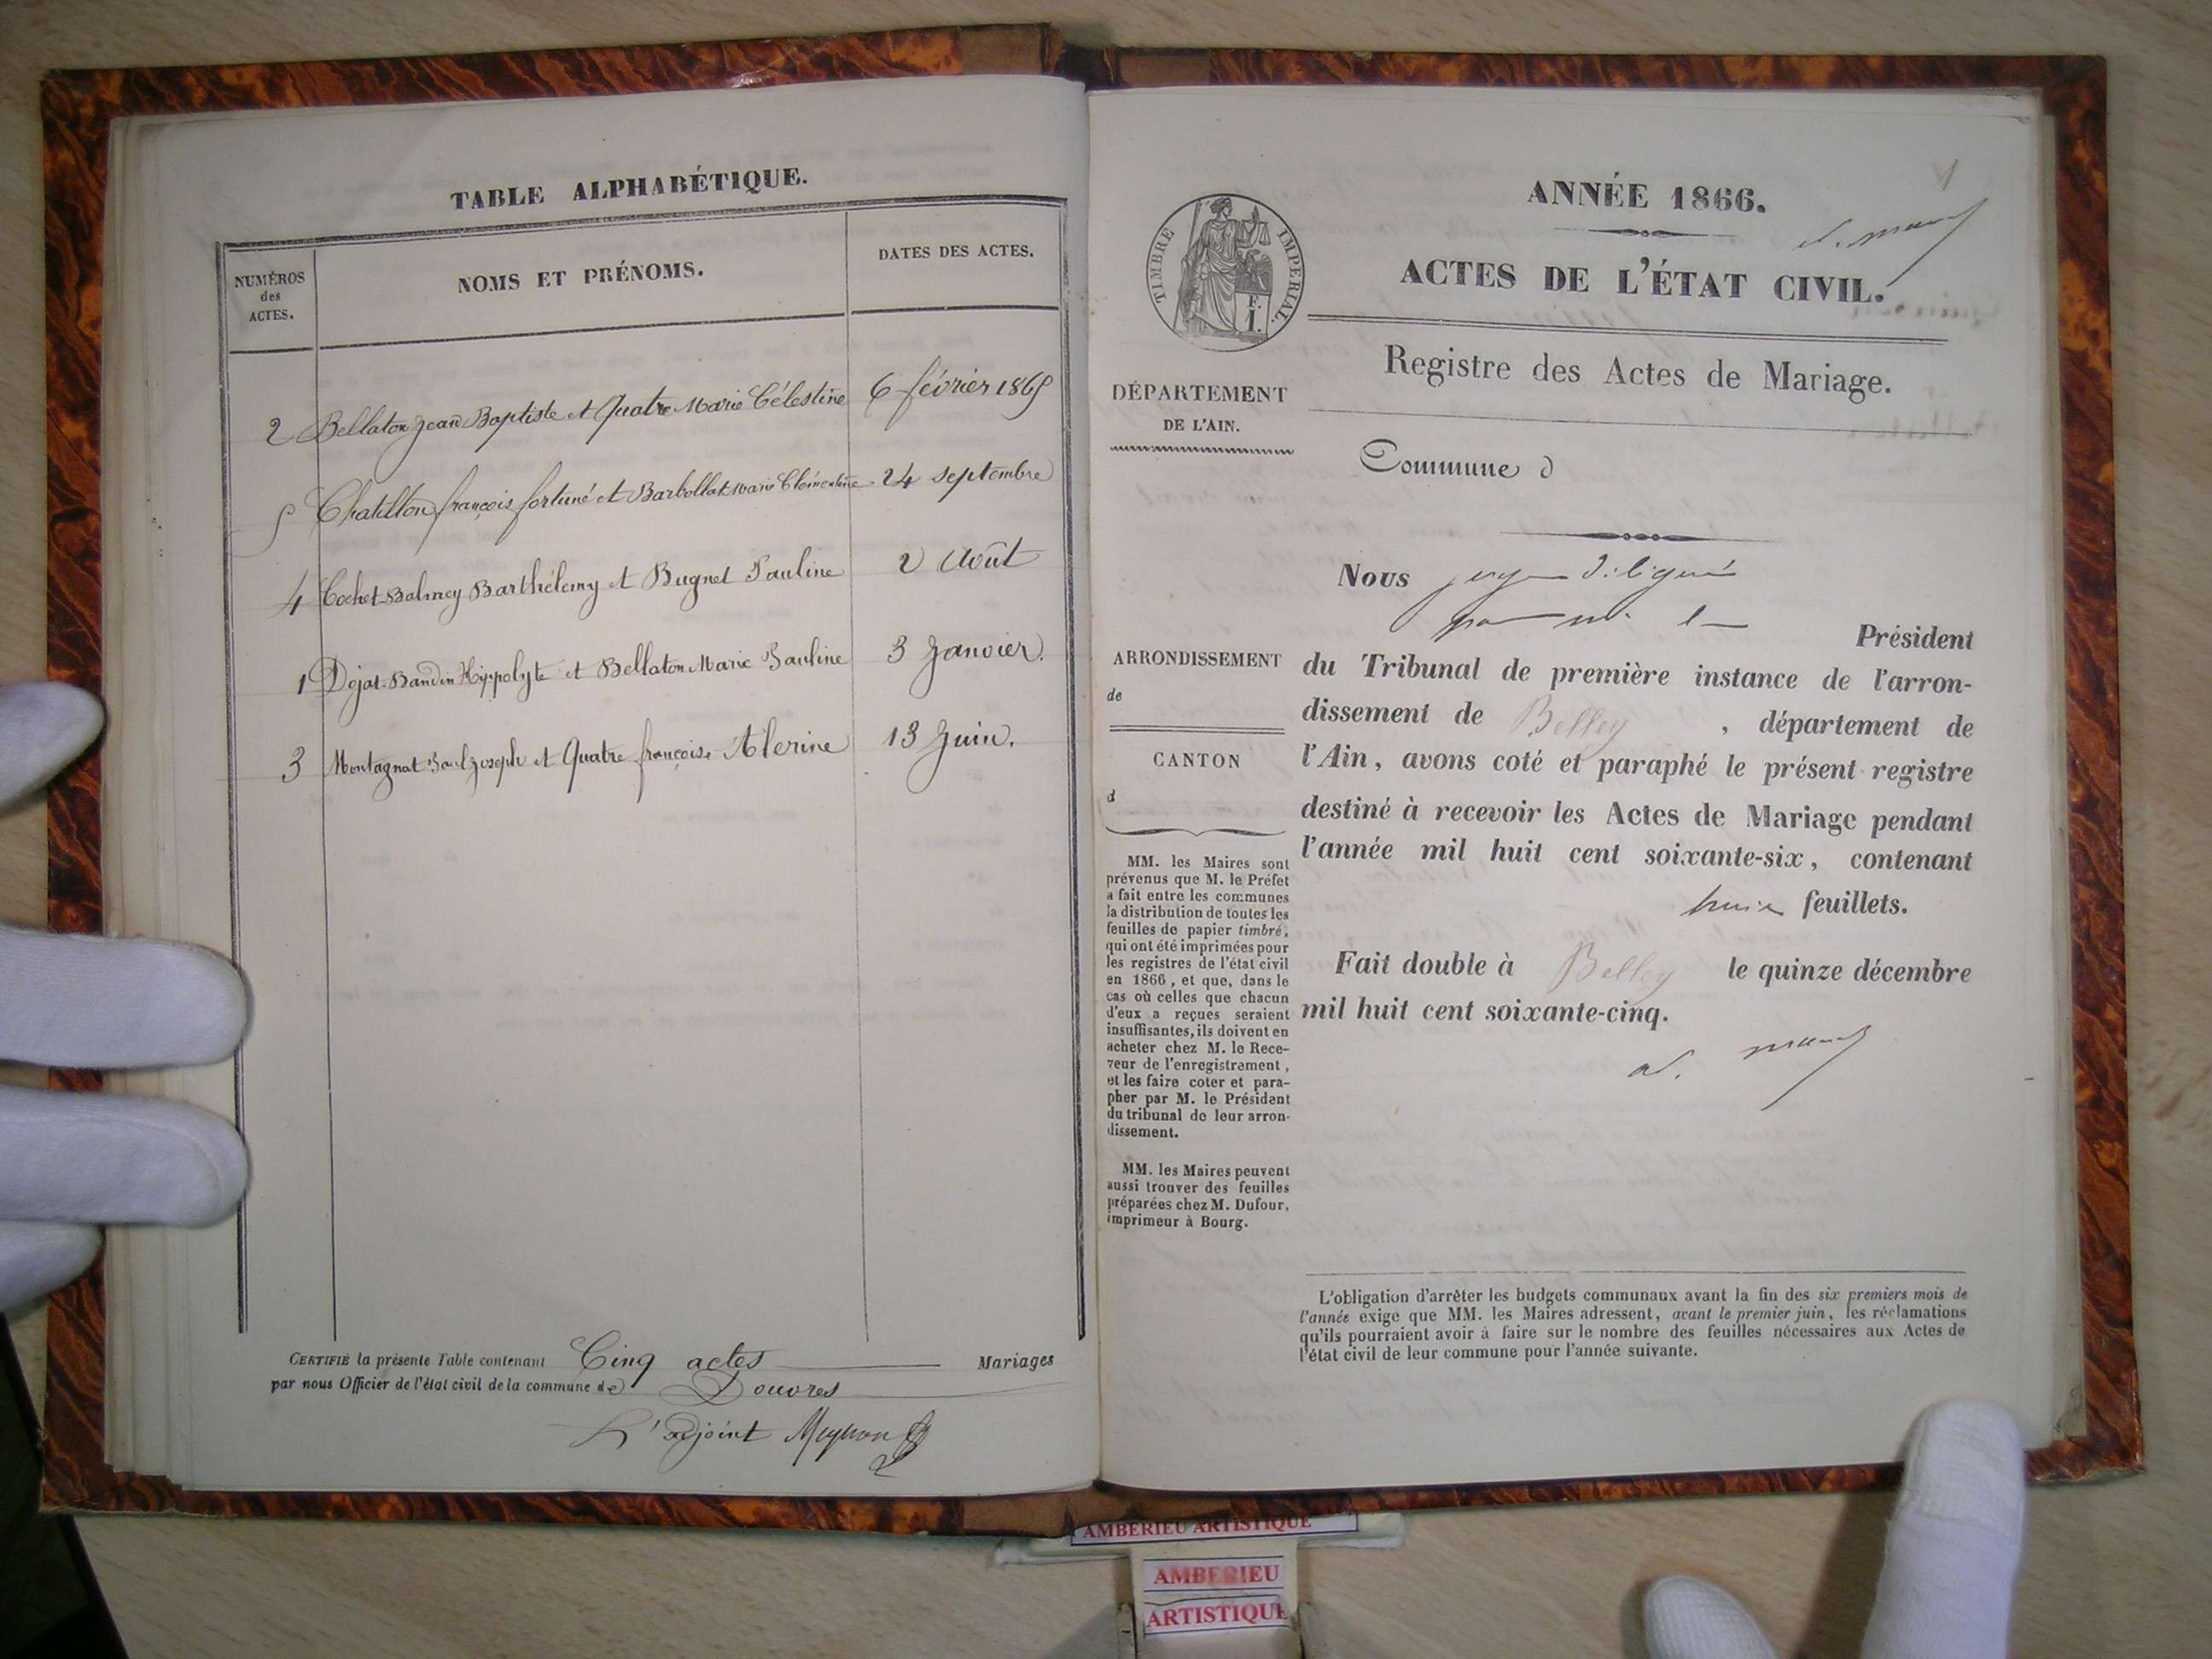 TABLE ALPHABÉTIQUE.
NUMÉROS
des
ACTES.
NOMS ET PRÉNOMS.
DATES DES ACTES.
2 Bellaton Jean Baptiste et Quatre Marie Célestine 6 février 1865
5 Chatillon françois fortuné et Barbollat Marie Clémentine 24 septembre
4 Cochet-Balmey Barthélemy et Bugnet Pauline 2 Août
1 Dojat-Bandin Hyppolyte et Bellaton Marie Pauline 3 Janvier.
3 Montagnat Paul Joseph et Quatre françoise 13 Juin.
CERTIFIÉ la présente Table contenant Cinq actes Mariages
par nous Officier de l'état civil de la commune de Douvres
L'adjoint
1
ANNÉE 1866.
ACTES DE L'ÉTAT CIVIL.
TIMBRE IMPERIAL.
F.
1.
Registre des Actes de Mariage.
DÉPARTEMENT
DE L'AIN.
Commune d
Nous
Président
ARRONDISSEMENT
de
CANTON
d
du Tribunal de première instance de l'arron-
dissement de Belley, département de
l'Ain, avons coté et paraphé le présent registre
destiné à recevoir les Actes de Mariage pendant
l'année mil huit cent soixante-six, contenant
feuillets.
Fait double à Belley le quinze décembre
mil huit cent soixante-cinq.
MM. les Maires sont
prévenus que M. le Préfet
a fait entre les communes
la distribution de toutes les
feuilles de papier timbré,
qui ont été imprimées pour
les registres de l'état civil
en 1866, et que, dans le
cas où celles que chacun
d'eux a reçues seraient
insuffisantes, ils doivent en
acheter chez M. le Rece-
veur de l'enregistrement,
et les faire coter et para-
pher par M. le Président
du tribunal de leur arron-
dissement.
MM. les Maires peuvent
aussi trouver des feuilles
préparées chez M. Dufour,
imprimeur à Bourg.
L'obligation d'arrêter les budgets communaux avant la fin des six premiers mois de
l'année exige que MM. les Maires adressent, avant le premier juin, les réclamations
qu'ils pourraient avoir à faire sur le nombre des feuilles nécessaires aux Actes de
l'état civil de leur commune pour l'année suivante.
AMBERIEU ARTISTIQUE
AMBERIEU
ARTISTIQUE